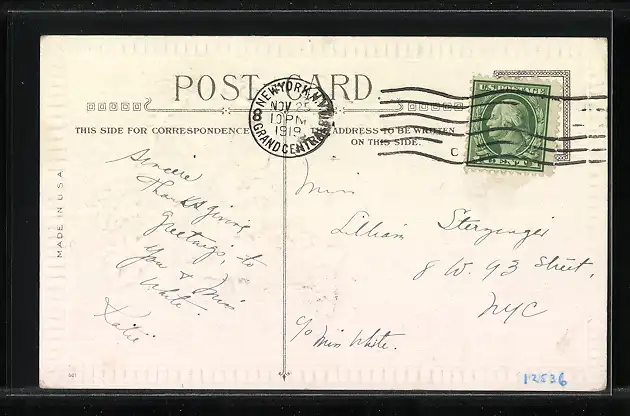 POST CARD
NEW YORK, N.Y.
NOV 25
10 PM
1919
8
GRAND CENTRAL
U.S. POSTAGE
THIS SIDE FOR CORRESPONDENCE
ADDRESS TO BE WRITTEN
ON THIS SIDE.
MADE IN U.S.A.
Sincere
Thanksgiving
greetings, to
you & Miss
White
Katie
Miss
Lillian
8 W. 93 Street,
NYC
c/o Miss White.
12536